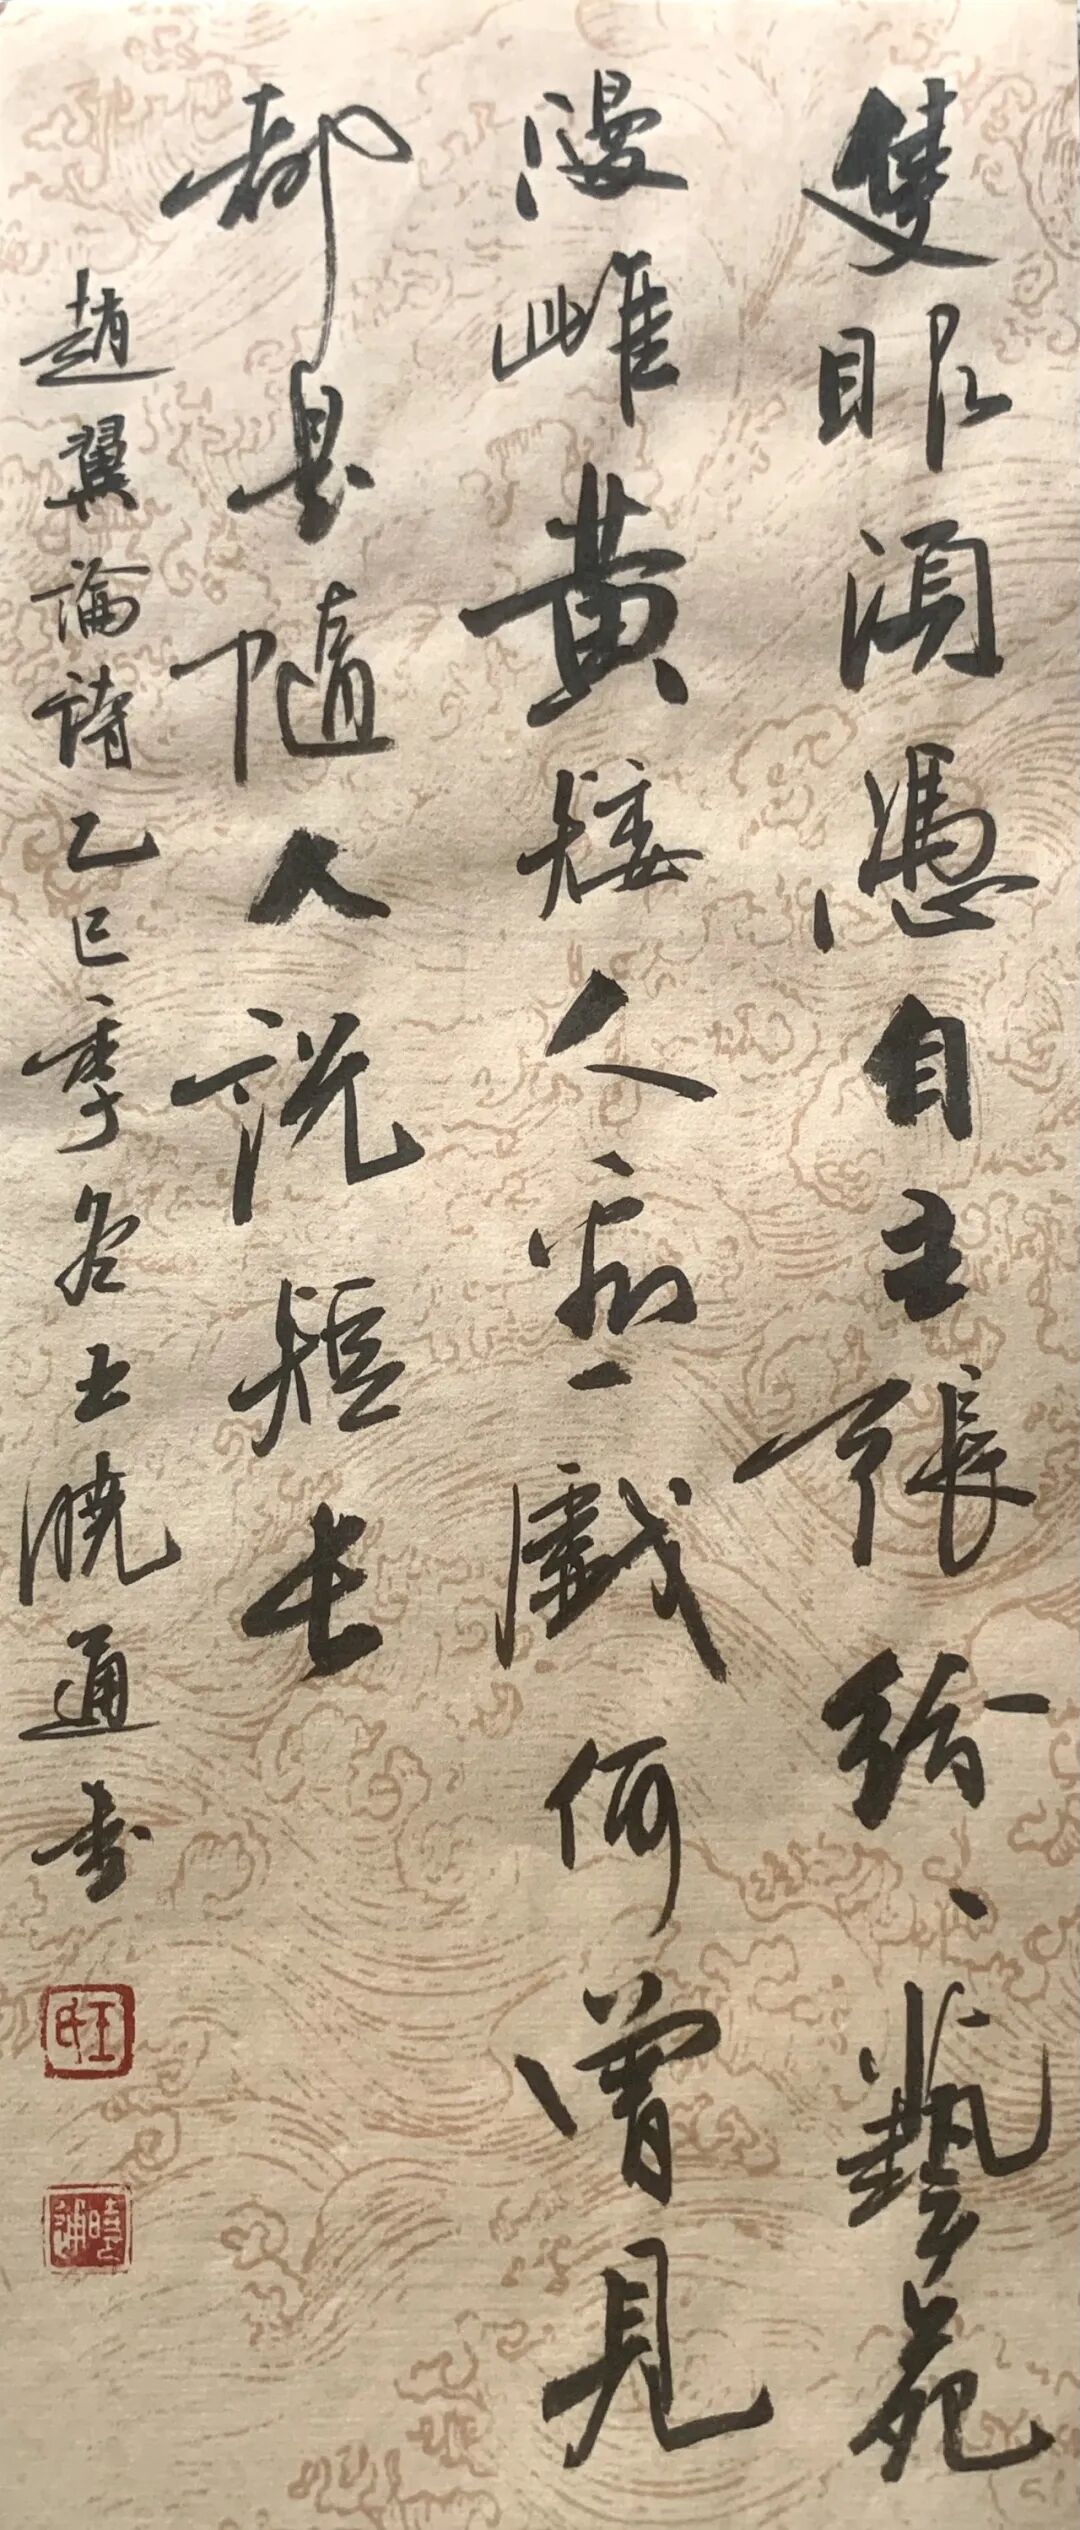 隻眼須憑自主張紛〻藝苑
漫雌黃矮人看戲何曾見
都是隨人說短長
趙翼論詩乙巳季冬王曉通書
王氏
曉通